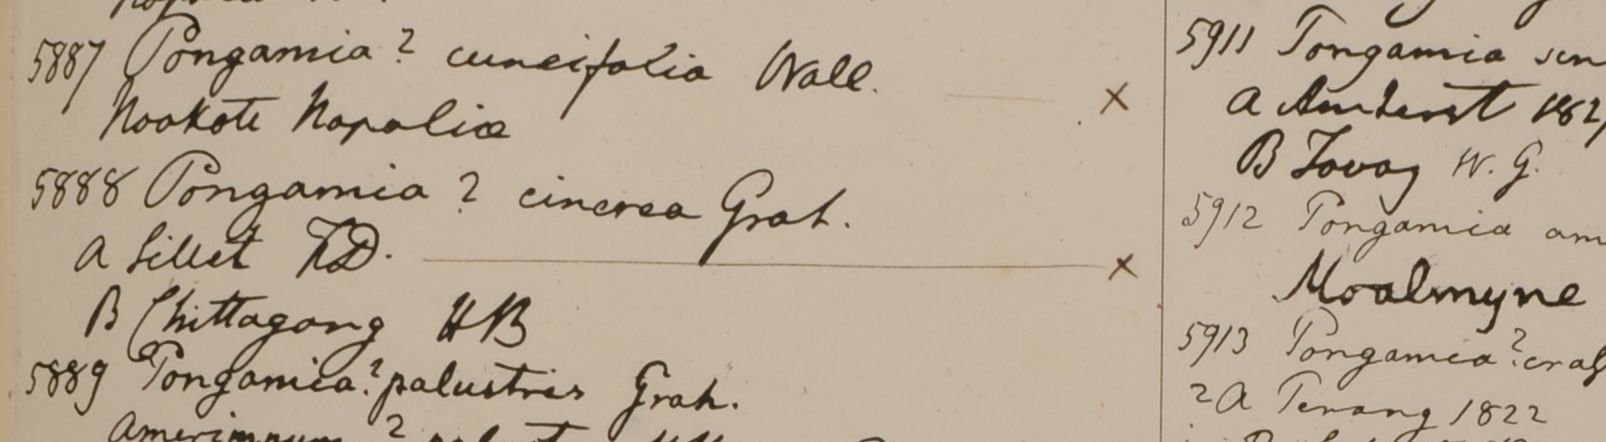 5887 Pongamia? cuneifolia Wall. ×
Nookote Napaliæ
5888 Pongamia? cinerea Grah.
A Sillet F.D. ×
B Chittagong HB
5889 Pongamia? palustris Grah.
Amerimnum ?
5911 Pongamia
A Amherst 1827
B Tavoy W. G.
5912 Pongamia
Moalmyne
5913 Pongamia?
2A Penang 1822